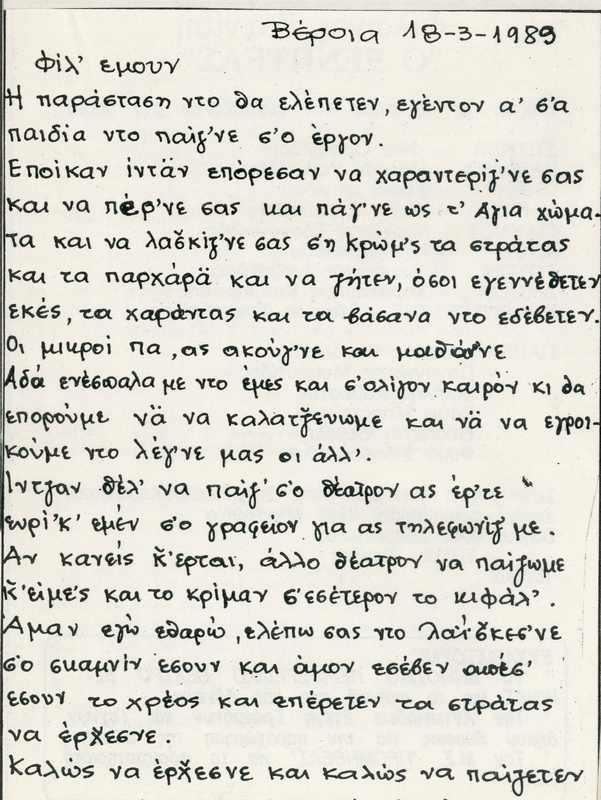 Βέροια 18-3-1989
Φίλ' εμουν
Η παράσταση ντο θα ελέπετεν, εγέντον α' σ'α
παιδία ντο παίζ'νε σ'ο έργον.
Εποίκαν ίντἄν επόρεσαν να χαραντερίζ'νε σας
και να πέρ'νε σας και πάγ'νε ως τ' Άγια χώμα-
τα και να λασ̌κίζ'νε σας ση Κρώμ'ς τα στράτας
και τα παρχάρᾰ και να ζήτεν, όσοι εγεννέθετεν
εκές, τα χαράντας και τα βάσανα ντο εδέβετεν.
Οι μικροί πα, ας ακούγ'νε και μαθάν'νε
Αδά ενέσπαλαμε ντο έμες και σ'ολίγον καιρόν κι θα
επορούμε νἄ να καλατζ̌ευωμε και νἄ να εγροι-
κούμε ντο λέγ'νε μας οι άλλ'.
Ίντζαν θέλ' να παίζ' σ'ο θέατρον ας έρ'τε
ευρί'κ' εμέν σ'ο γραφείον για ας τηλεφωνίζ με.
Αν κανείς κ̌'έρται, άλλο θέατρον να παίζωμε
κ̌'είμες και το κρίμαν σ'εσέτερον το κιφάλ'.
Άμαν εγώ εθαρώ, ελέπω σας ντο λαΐσ̌κεσ'νε
σ'ο σκαμνίν εσουν και άμον εσέβεν απέσ'
εσουν το χρέος και επέρετεν τα στράτας
να έρχ̌εσνε.
Καλώς να έρχ̌εσνε και καλώς να παίζετεν